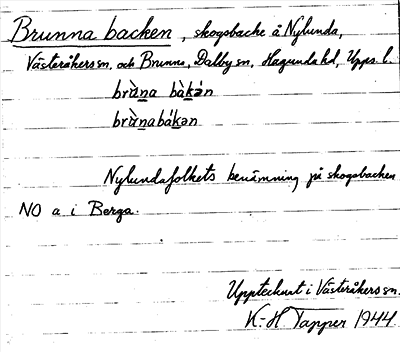 Brunna backen, skogsbacke å Nylunda,
Västeråkers sn. och Brunna, Dalby sn, Hagunda hd, Upps. l.
brùna bàkən
brùnabákən
Nylundafolkets benämning på skogsbacken
NO a i Berga.
Upptecknat i Västeråkers sn.
K.-H Tapper 1944.